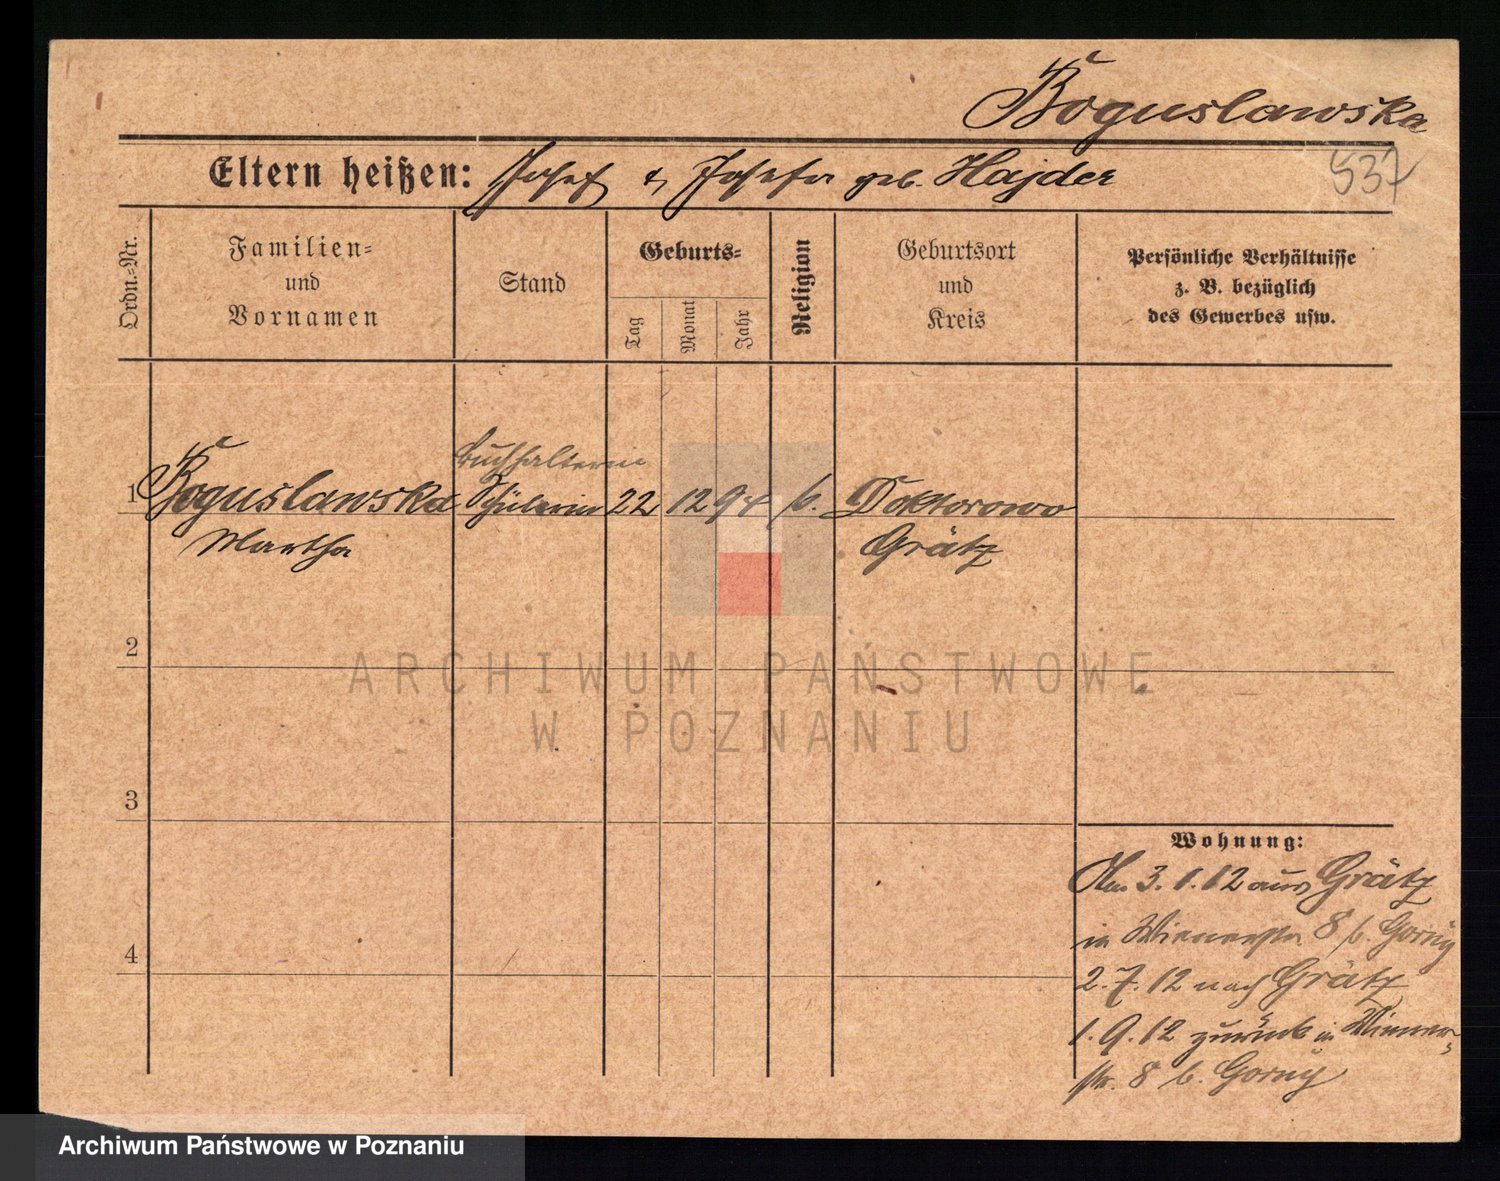 Boguslawska
537
Eltern heißen: Josef & Josefa geb. Hajder
Ordn.-Nr.
Familien-
und
Vornamen
Stand
Geburts-
Tag
Monat
Jahr
Religion
Geburtsort
und
Kreis
Persönliche Verhältnisse
z. B. bezüglich
des Gewerbes usw.
Buchhalterin
1 Boguslawska Schülerin 22 12 94 k. Doktorowo
Martha Grätz
2
3
4
Wohnung:
Am 3.1.12 aus Grätz
in Wienerstr 8 b. Gorny
2.7.12 nach Grätz
1.9.12 zurück in Wiener-
str. 8 b. Gorny
ARCHIWUM PAŃSTWOWE
W POZNANIU
Archiwum Państwowe w Poznaniu